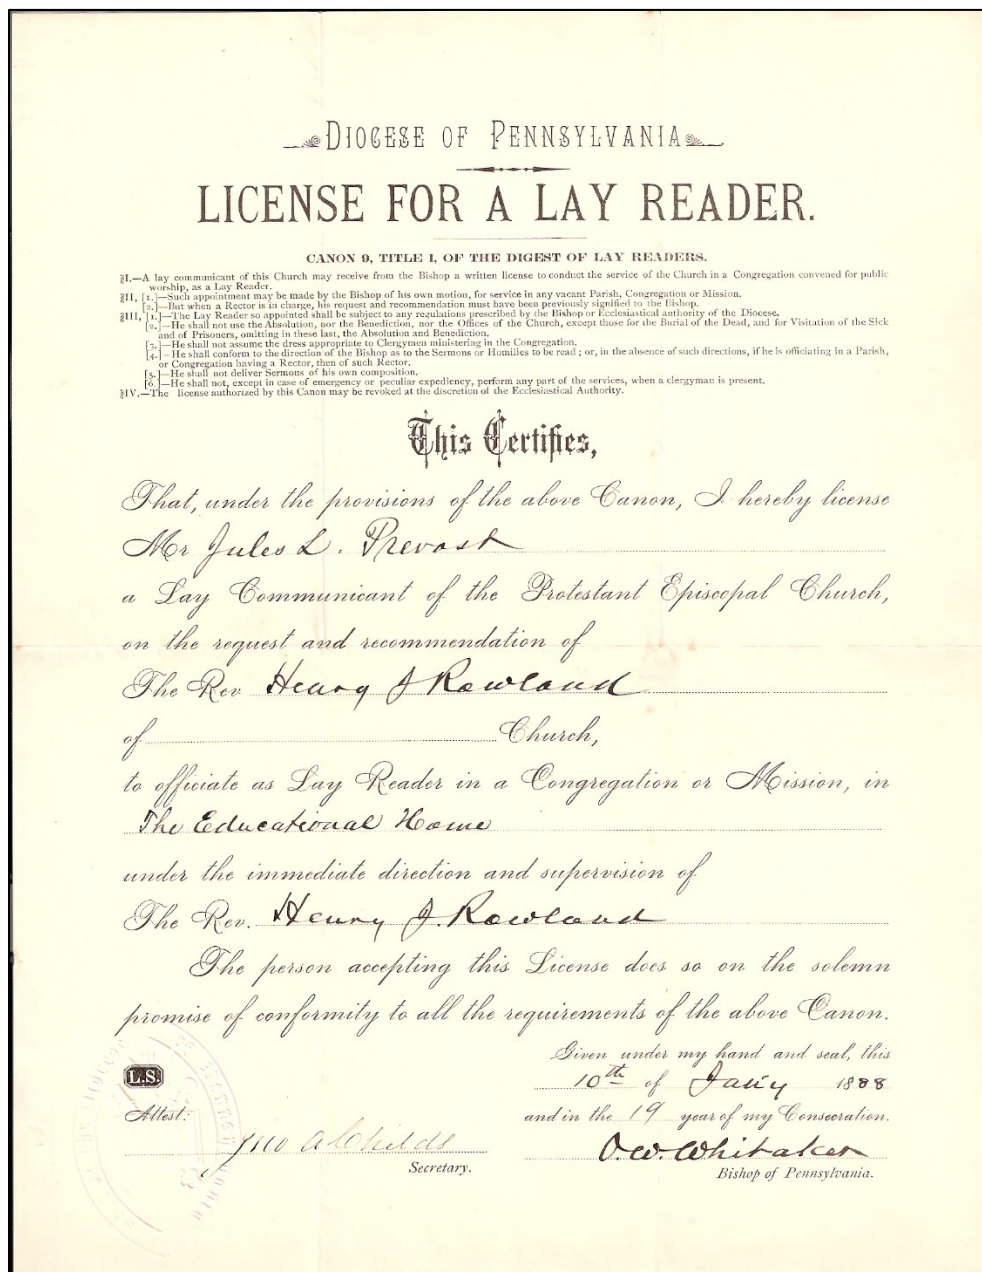 DIOCESE OF PENNSYLVANIA
LICENSE FOR A LAY READER.
CANON 9, TITLE I, OF THE DIGEST OF LAY READERS.
§I.—A lay communicant of this Church may receive from the Bishop a written license to conduct the service of the Church in a Congregation convened for public
worship, as a Lay Reader.
§II, [1.]—Such appointment may be made by the Bishop of his own motion, for service in any vacant Parish, Congregation or Mission.
[2.]—But when a Rector is in charge, his request and recommendation must have been previously signified to the Bishop.
§III, [1.]—The Lay Reader so appointed shall be subject to any regulations prescribed by the Bishop or Ecclesiastical authority of the Diocese.
[2.]—He shall not use the Absolution, nor the Benediction, nor the Offices of the Church, except those for the Burial of the Dead, and for Visitation of the Sick
and of Prisoners, omitting in these last, the Absolution and Benediction.
[3.]—He shall not assume the dress appropriate to Clergymen ministering in the Congregation.
[4.]—He shall conform to the direction of the Bishop as to the Sermons or Homilies to be read; or, in the absence of such directions, if he is officiating in a Parish,
or Congregation having a Rector, then of such Rector.
[5.]—He shall not deliver Sermons of his own composition.
[6.]—He shall not, except in case of emergency or peculiar expediency, perform any part of the services, when a clergyman is present.
§IV.—The license authorized by this Canon may be revoked at the discretion of the Ecclesiastical Authority.
This Certifies,
That, under the provisions of the above Canon, I hereby license
Mr Jules L. Prevost
a Lay Communicant of the Protestant Episcopal Church,
on the request and recommendation of
The Rev Henry J Rowland
of Church,
to officiate as Lay Reader in a Congregation or Mission, in
The Educational Home
under the immediate direction and supervision of
The Rev. Henry J. Rowland
The person accepting this License does so on the solemn
promise of conformity to all the requirements of the above Canon.
Given under my hand and seal, this
L.S.
10th of Jan'y 1888
Attest:
and in the 19 year of my Consecration.
Jno A Childs
O. W. Whitaker
Secretary.
Bishop of Pennsylvania.